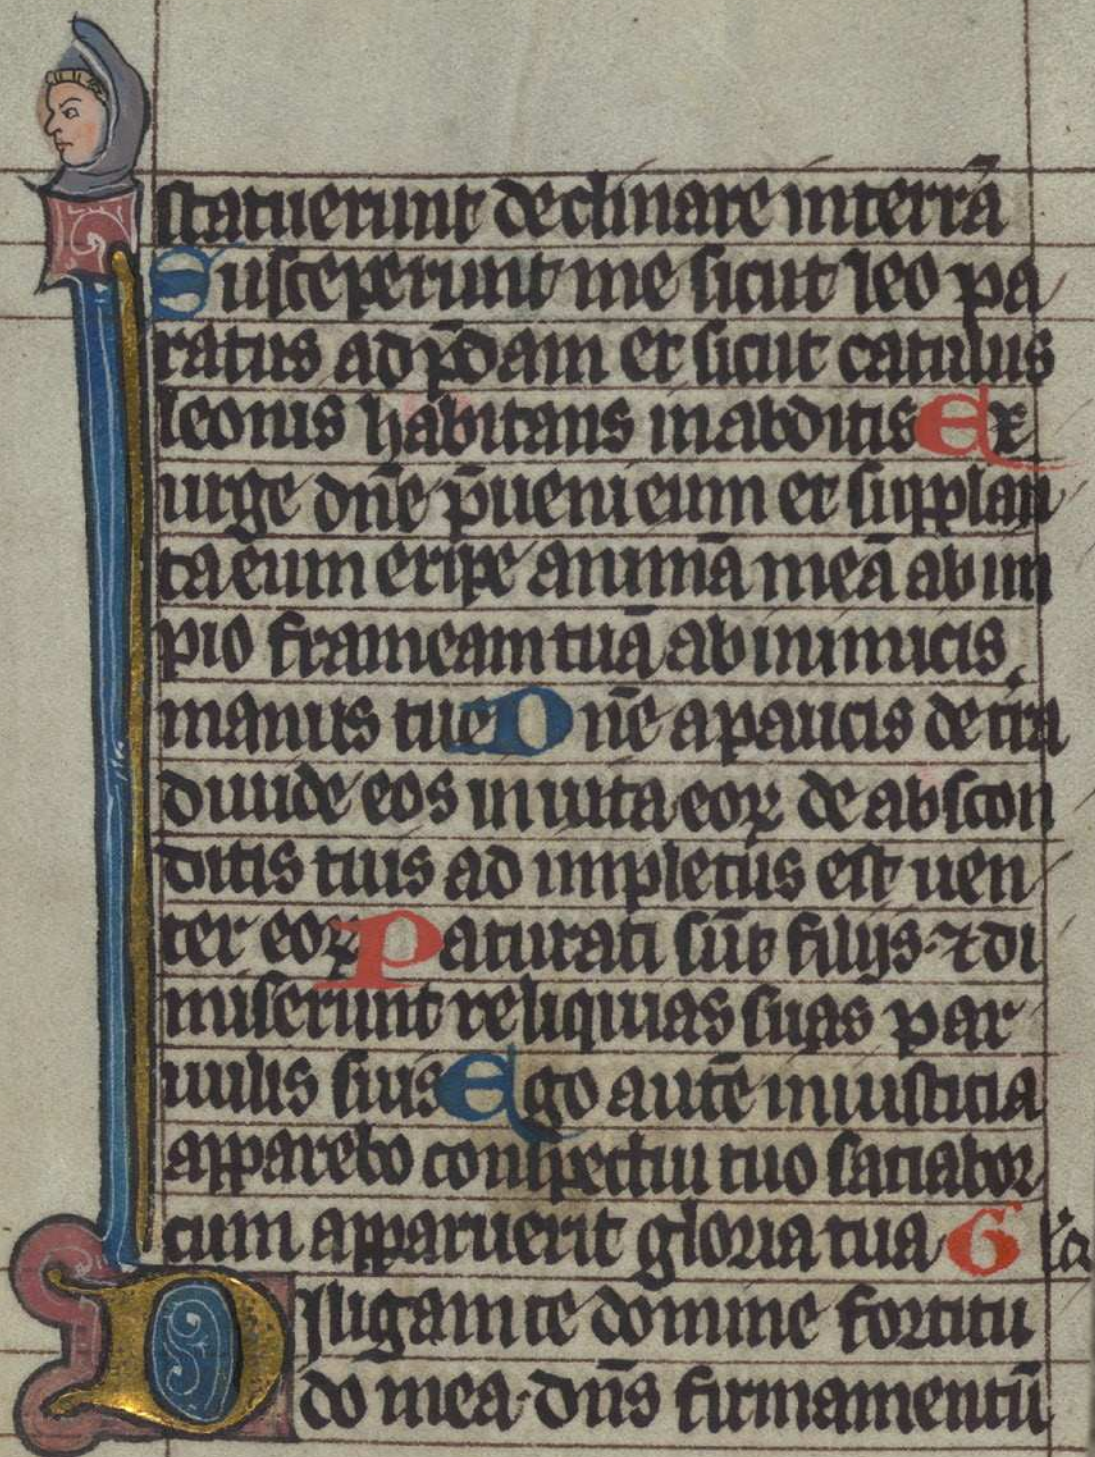 statuerunt declinare interrā
Susceperunt me sicut leo pa
ratus adp̄dam et sicut catulus
leonis habitans inabditis Ex
urge dn̄e p̄ueni eum et supplan
ta eum eripe animā meā ab im
pio frameam tuā ab inimicis
manus tue Dn̄e a paucis de tr̄a
diuide eos in uita eoꝝ de abscon
ditis tuis ad impletus est uen
ter eoꝝ Paturati sūt filijs · ⁊ di
miserunt reliquias suas par
uulis suis Ego autē iniusticia
apparebo conspectui tuo satiabor
cum apparuerit gloria tua Gl'ia
Diligam te domine fortitu
do mea · dn̄s firmamentū